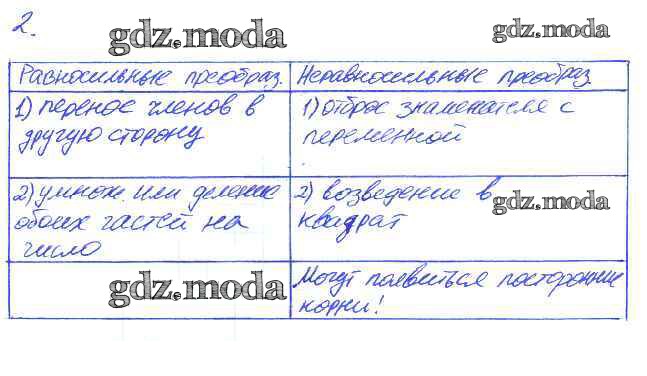 2.
gdz.moda
gdz.moda
Равносильные преобраз.
Неравносильные преобраз
1) перенос членов в
другую сторону
1) отброс знаменателя с
переменной
2) умнож. или деление
обоих частей на
число
2) возведение в
квадрат
gdz.moda
gdz.moda
Могут появиться посторонние
корни!